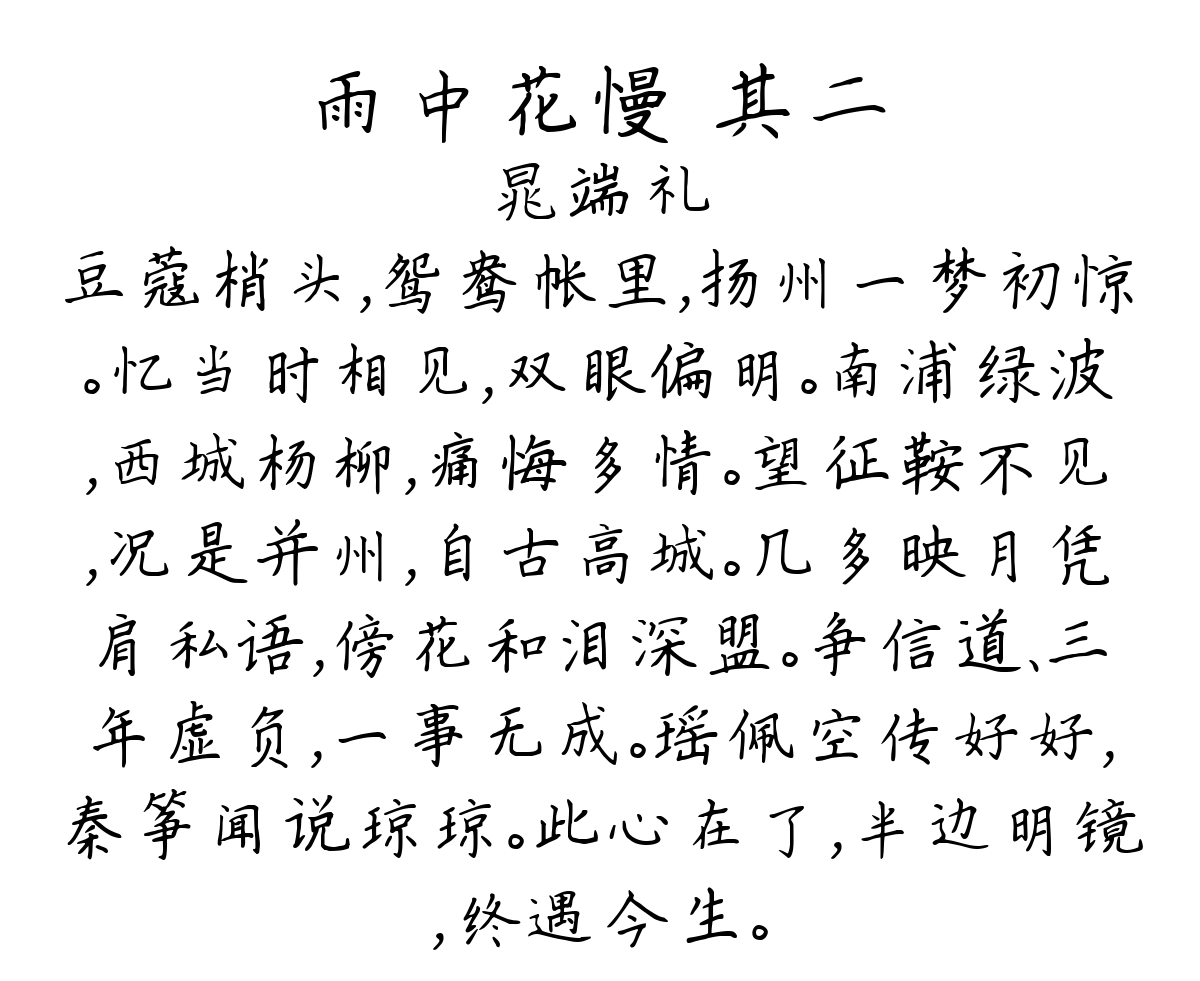 雨中花慢 其二
晁端礼
豆蔻梢头,鸳鸯帐里,扬州一梦初惊
。忆当时相见,双眼偏明。南浦绿波
,西城杨柳,痛悔多情。望征鞍不见
,况是并州,自古高城。几多映月凭
肩私语,傍花和泪深盟。争信道、三
年虚负,一事无成。瑶佩空传好好,
秦筝闻说琼琼。此心在了,半边明镜
,终遇今生。